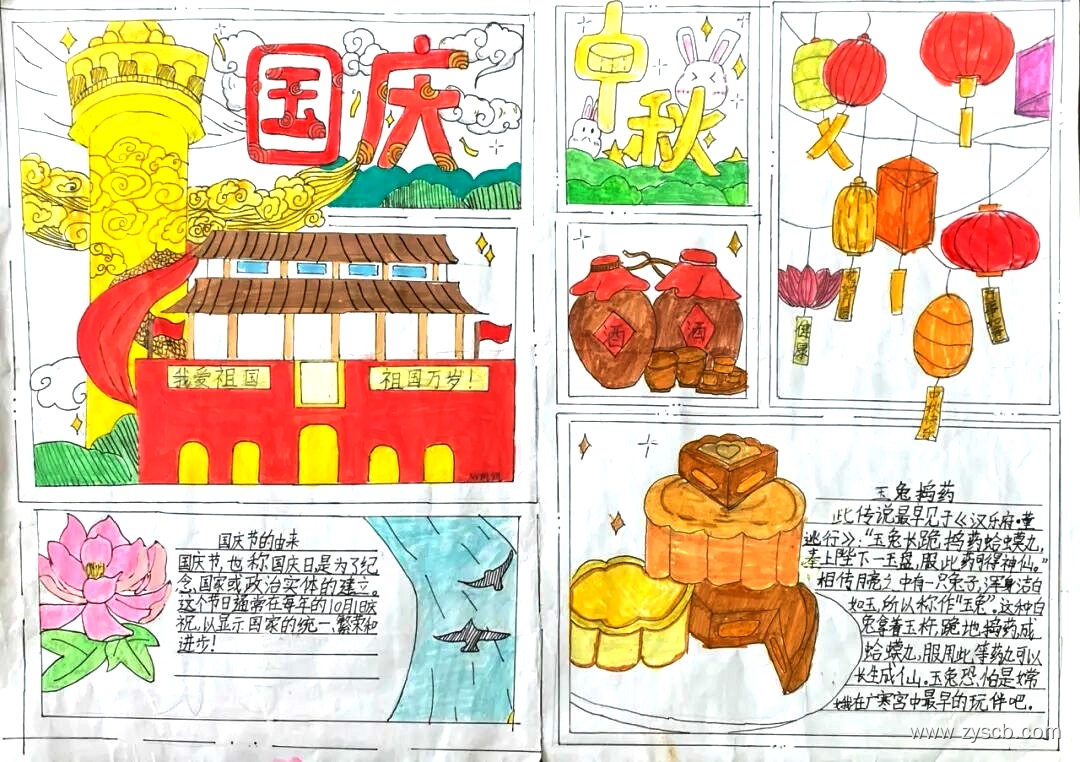 国庆
我爱祖国
祖国万岁!
国庆节的由来
国庆节,也称国庆日是为了纪
念,国家或政治实体的建立。
这个节日通常在每年的10月1日庆
祝,以显示国家的统一、繁荣和
进步!
中
秋
酒
酒
健
康
中秋快乐
玉兔捣药
此传说最早见于《汉乐府·董
逃行》。“玉兔长跪捣药蛤蟆丸,
奉上陛下一玉盘,服此药可得神仙。”
相传月亮之中有一只兔子,浑身洁白
如玉,所以称作“玉兔”。这种白
兔拿着玉杵,跪地捣药,成
蛤蟆丸,服用此等药丸可以
长生成仙。玉兔恐怕是嫦
娥在广寒宫中最早的玩伴吧。
www.zyscb.com